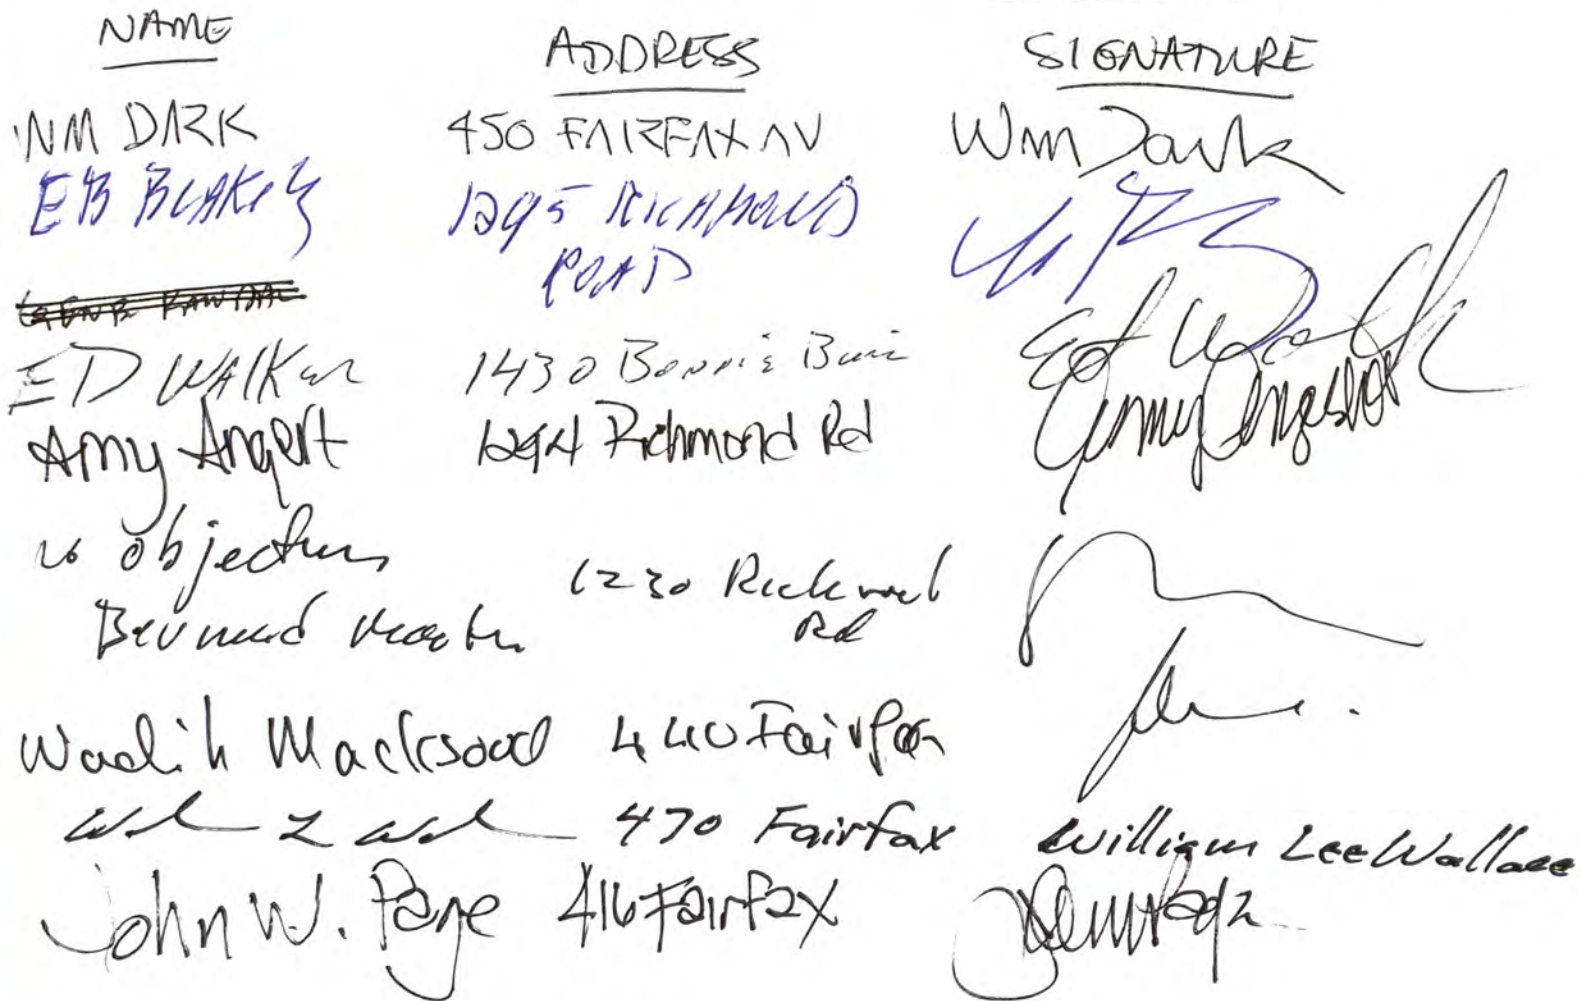 NAME ADDRESS SIGNATURE
WM DARK 450 FAIRFAX AV Wm Dark
EB BLAKELY 1295 RICHMOND
ROAD
ED WALKER 1430 Bonnie Burn Ed
Amy Angert 1294 Richmond Rd Amy Angert
no objections
Bernard 1230 Richmond
Rd
Wadih Macksood 440 Fairfax
470 Fairfax William Lee Wallace
John W. Page 416 Fairfax John W Page